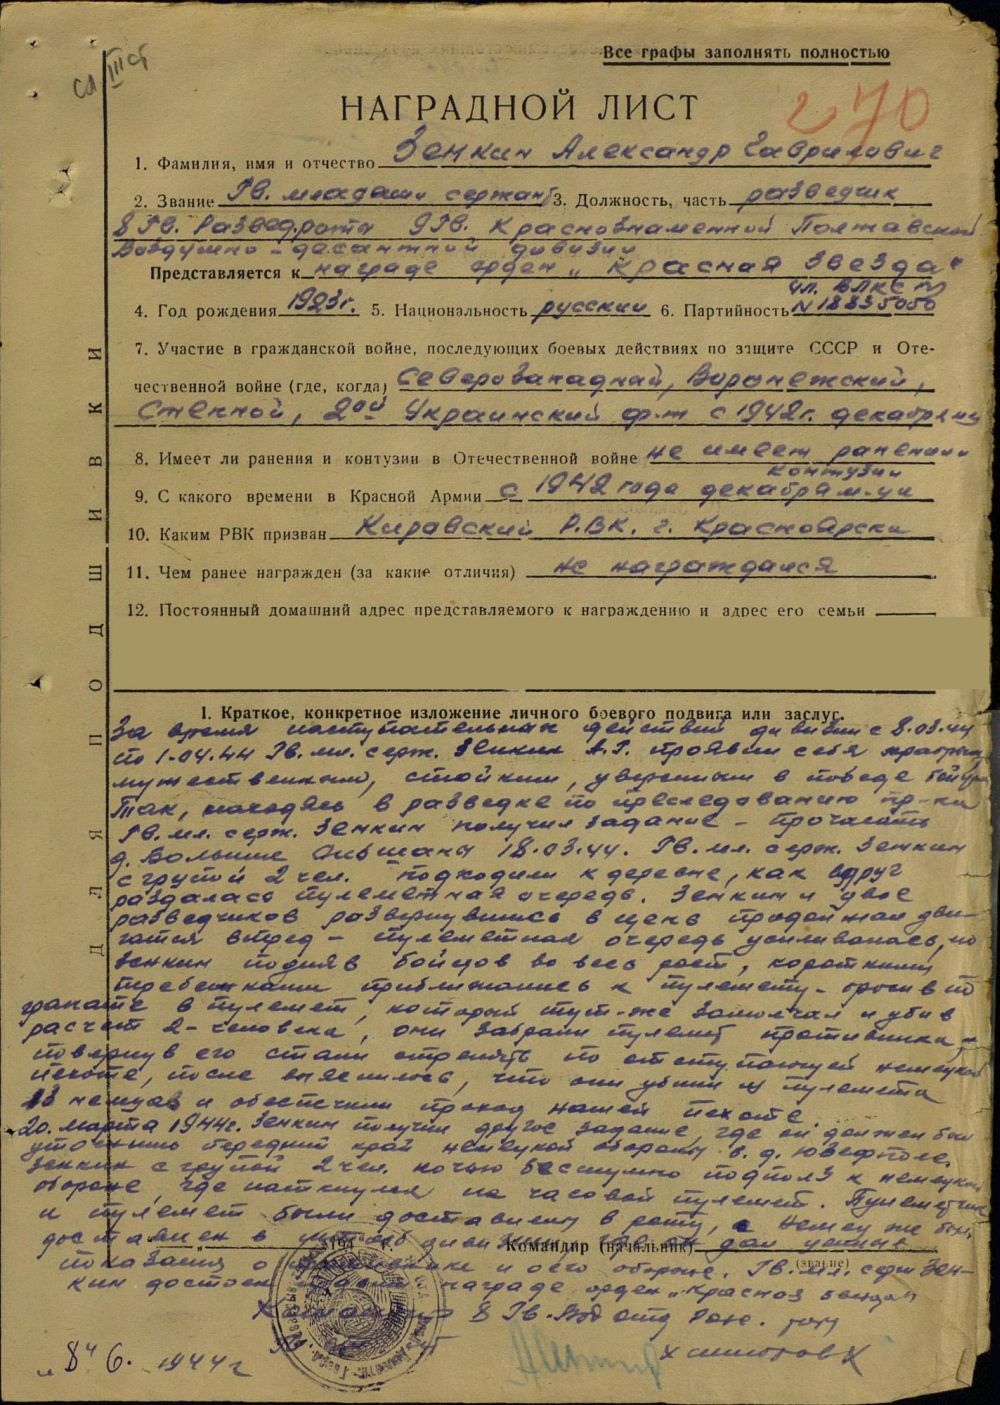 Все графы заполнять полностью
сл III ст
НАГРАДНОЙ ЛИСТ
270
1. Фамилия, имя и отчество Зенкин Александр Гаврилович
2. Звание Гв. младший сержант 3. Должность, часть разведчик
8 Гв. Разведроты 9 Гв. Краснознаменной Полтавской
Воздушно-десантной дивизии
Представляется к награде орден „Красная звезда“
чл. ВЛКСМ
4. Год рождения 1923 г. 5. Национальность русский 6. Партийность N 18835050
7. Участие в гражданской войне, последующих боевых действиях по защите СССР и Оте-
чественной войне (где, когда) Северозападной, Воронежский,
Степной, 2ой Украинский фр-т с 1942 г. декабря м-ца
8. Имеет ли ранения и контузии в Отечественной войне не имеет ранений
контузии
9. С какого времени в Красной Армии с 1942 года декабря м-ца
10. Каким РВК призван Кировский РВК. г. Красноярска
11. Чем ранее награжден (за какие отличия) не награждался
12. Постоянный домашний адрес представляемого к награждению и адрес его семьи
ДЛЯ ПОДШИВКИ
I. Краткое, конкретное изложение личного боевого подвига или заслуг.
За время наступательных действий дивизии с 8.03.44
по 1.04.44 Гв. мл. серж. Зенкин А.Г. проявил себя храбрым,
мужественным, стойким, уверенным в победе бойцом
Так, находясь в разведке по преследованию пр-ка
Гв. мл. серж. Зенкин получил задание – прочесать
д. Большие 18.03.44. Гв. мл. серж. Зенкин
с групой 2 чел. подходили к деревне, как вдруг
раздалась пулеметная очередь. Зенкин и двое
разведчиков развернувшись в цепь продолжали дви-
гатся вперед – пулеметная очередь усиливалась, но
Зенкин подняв бойцов во весь рост, короткими
перебежками приближались к пулемету – бросив по
гранате в пулемет, который тут-же замолчал и убив
расчет 2-человека, они забрали пулемет противника и
повернув его стали стрелять по отступающей немецкой
пехоте, после выяснилось, что они убили из пулемета
13 немцев и обеспечили проход нашей пехоте.
20. марта 1944 г. Зенкин получил другое задание, где он должен был
уточнить передний край немецкой обороны в д. Юзефполе.
Зенкин с групой 2 чел. ночью бесшумно подполз к немецкой
обороне, где наткнулся на часовой пулемет. Пулеметчик
и пулемет были доставлены в роту, а немец же был
доставлен в штаб дивизии где он дал ценные
194 г. Командир (начальник)
(звание)
показания о противнике и его обороне. Гв. мл. серж Зен-
кин достоен награде орден „Красноя звезда“
Командир 8 Гв. роту
„8“ 6. 1944 г